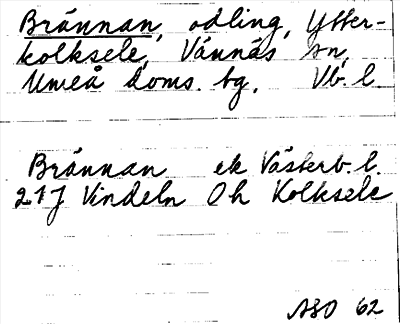 Brännan, odling, Ytter-
kolksele, Vännäs sn,
Umeå doms. tg. Vb. l.
Brännan ek Västerb. l.
21J Vindeln Oh Kolksele
ASO 62